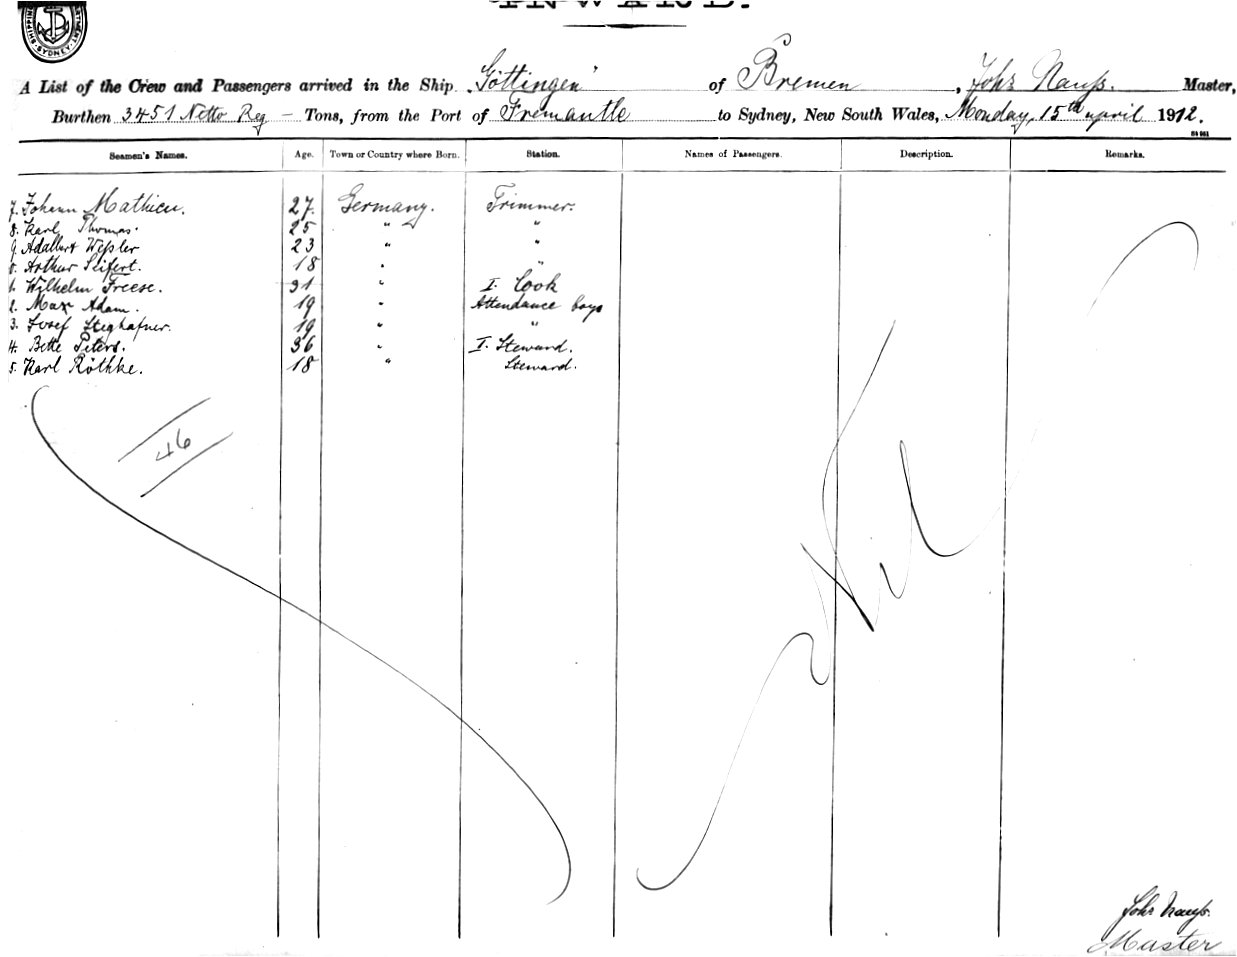 INWARD.
SHIPPING
SYDNEY
A List of the Crew and Passengers arrived in the Ship "Göttingen" of Bremen, Johs Nauß. Master,
Burthen 3451 Netto Reg – Tons, from the Port of Fremantle to Sydney, New South Wales, Monday, 15th april 1912.
Seamen's Names. Age. Town or Country where Born. Station. Names of Passengers. Description. Remarks.
7. Johann Mathieu. 27. Germany. Trimmer.
8. Karl Thomas. 25 " "
9. Adalbert Weßler 23 " "
0. Arthur Seifert. 18 " "
1. Wilhelm Freese. 31 " I. Cook
2. Max Adam. 19 " Attendance boys
3. Josef Steghafner. 19 " "
4. Bette Peters. 36 " I. Steward.
5. Karl Röthke. 18 " Steward.
46
Nil
Johs Nauß.
Master